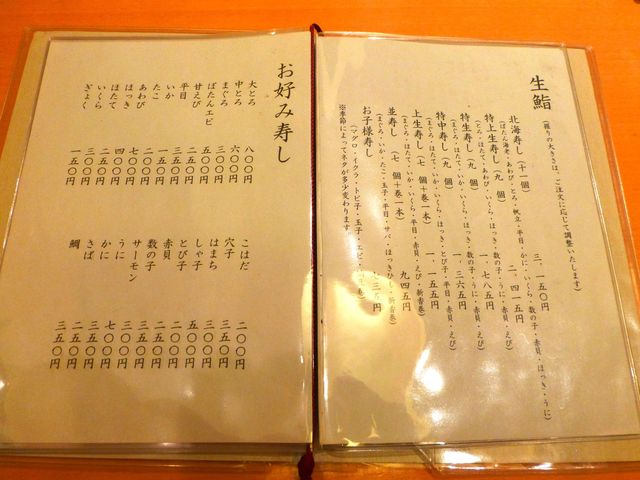 生鮨
(握りの大きさは、ご注文に応じて調整いたします)
北海寿し(十一個) 三、一五〇円
(ぼたん海老・あわび・とろ・帆立・平目・かに・いくら・数の子・赤貝・ほっき・うに)
特上生寿し(九個) 二、四一五円
(とろ・ほたて・あわび・いくら・ほっき・数の子・うに・赤貝・えび)
特生寿し(九個) 一、七八五円
(まぐろ・ほたて・いか・いくら・ほっき・数の子・うに・赤貝・えび)
特中寿し(九個) 一、三六五円
(まぐろ・ほたて・いか・いくら・ほっき・とび子・平目・赤貝・えび)
上生寿し(七個+巻一本) 一、一五五円
(まぐろ・ほたて・いか・いくら・平目・赤貝・えび・新香巻)
並寿し(七個+巻一本) 九四五円
(まぐろ・いか・たこ・玉子・平目・サバ・ほっきひも・新香巻)
お子様寿し 七三五円
(マグロ・イクラ・トビ子・玉子・エビ・
※季節によってネタが多少変わります。
お好み寿し
大とろ 八〇〇円
中とろ 六〇〇円
まぐろ 三〇〇円
ぼたんエビ 五〇〇円
甘えび 二五〇円
平目 三五〇円
いか 一五〇円
たこ
あわび 七〇〇円
ほっき 四〇〇円
ほたて 二五〇円
いくら 三〇〇円
ぎょく 一五〇円
こはだ 二〇〇円
穴子 三五〇円
はまち 三〇〇円
しゃ子 二五〇円
とび子 二〇〇円
赤貝
数の子 二五〇円
サーモン 二〇〇円
うに 七〇〇円
かに 三五〇円
さば 二五〇円
鯛 三五〇円